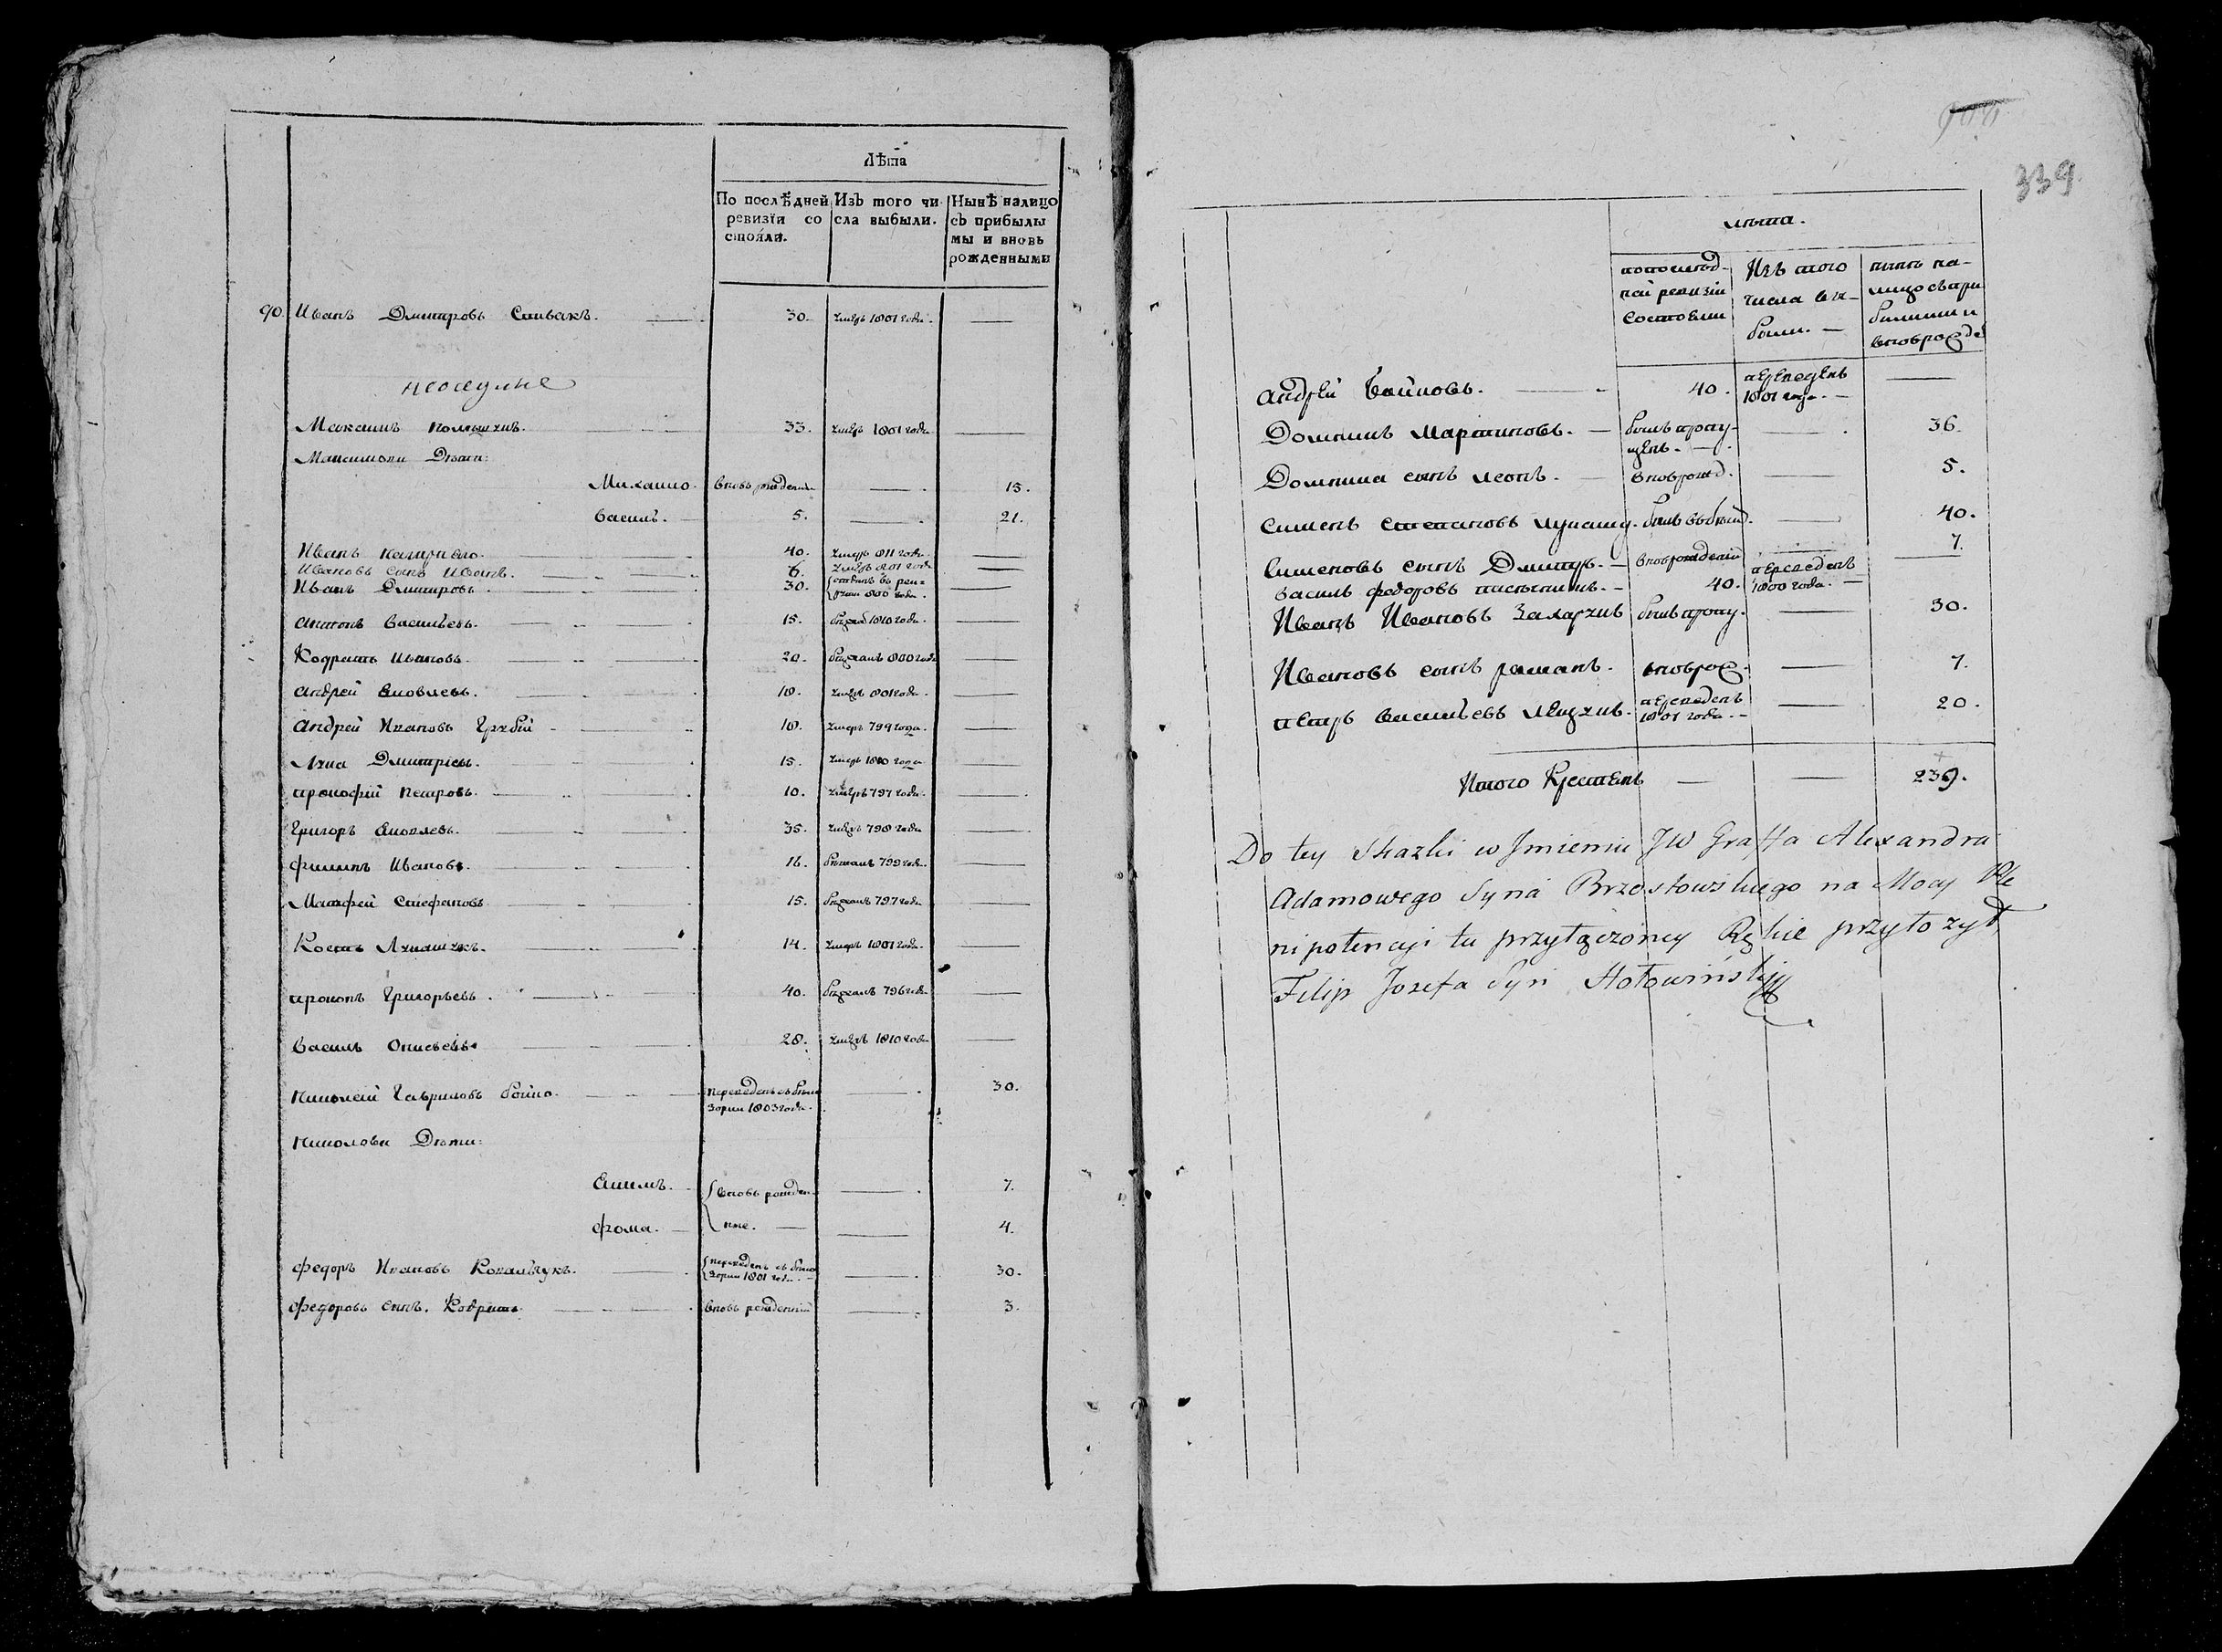 Лѣта
По послѣдней ревизїи со стояли.
Изъ того чи сла выбыли.
Нынѣ налицо съ прибылы ми и вновь рожденными
90. Иванъ Дмитровъ Спивакъ. 30. умеръ 1801 года.
неоседлие
Максимъ 33. умеръ 1801 года
Максимови Дѣти:
Михаило. вновь рожденъ 15.
Василь. 5. 21.
Иванъ 40. умеръ 811 года.
Ивановъ сынъ Иванъ. 6. умеръ 801 года
Иванъ Дмитровъ. 30. отданъ въ рек= руты 800 года.
Антонъ Васильевъ. 15. бѣжал 1810 года.
Кодратъ Ивановъ. 20. бѣжалъ 800 года
Андрей Яковлевъ. 18. умеръ 801 года.
Андрей Ивановъ 18. умеръ 799 года.
Лука Дмитріевъ. 15. умеръ 1800 года
Прокофій Петровъ. 10. умеръ 797 года.
Григоръ Яковлевъ. 35. умеръ 798 года
Филипъ Ивановъ. 16. бѣжалъ 799 года.
Матфей Стефановъ 15. бѣжалъ 797 года
Костъ 14. умеръ 1801 года.
Прокопъ Григорьевъ. 40. бѣжалъ 796 года
Василь 28. умеръ 1810 года
Николай Гавриловъ Бойко. переведенъ съ Бѣло зорки 1803 года. 30.
Николови Дѣти:
Якимъ. вновь рожден 7.
Фома. ные. 4.
Федоръ Ивановъ Ковальчукъ. переведенъ съ Бѣло зорки 1801 год. 30.
Федоровъ сынъ. Кодратъ вновь рожденний 3.
339.
лѣта.
попослѣд- ней ревизіи состояли
Изъ того числа вы- были.
нынѣ на- лицо съ при былими и вновь рожде
Андрей Бойковъ. 40. переведенъ 1801 года.
Доминикъ Мартиновъ. былъ пропу- щенъ. 36.
Домника сынъ Леонъ. вновь рожд. 5.
Сименъ Степановъ 40.
Сименовъ сынъ Дмитръ. вновь рожденій 7.
Василь Федоровъ 40. переведенъ 1800 года.
Иванъ Ивановъ Захарчикъ былъ пропу. 30.
Ивановъ сынъ Романъ. вновь рож. 7.
Петръ Васильевъ переведенъ 1801 года. 20.
Итого крестянъ 239.
Do tey Skazki w Jmieniu JW Graffa Alexandra
Adamowego Syna Brzostowskiego na Mocy Ple
nipotencyi tu przyłączoney Rękie przyłożył
Filip Jozefa Syn Hołowiński